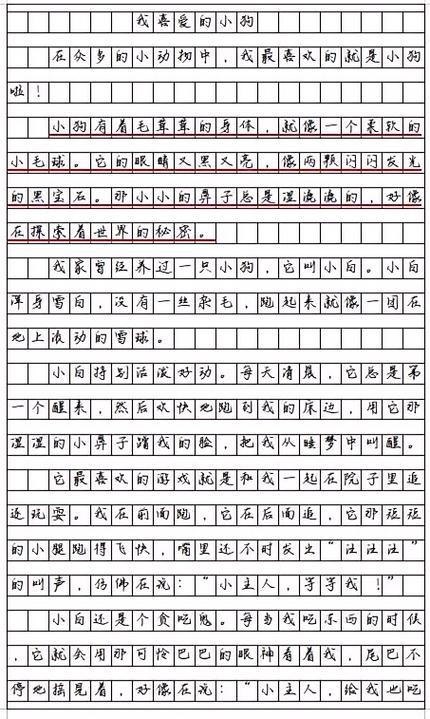 我喜爱的小狗
在众多的小动物中，我最喜欢的就是小狗
啦！
小狗有着毛茸茸的身体，就像一个柔软的
小毛球。它的眼睛又黑又亮，像两颗闪闪发光
的黑宝石。那小小的鼻子总是湿漉漉的，好像
在探索着世界的秘密。
我家曾经养过一只小狗，它叫小白。小白
浑身雪白，没有一丝杂毛，跑起来就像一团在
地上滚动的雪球。
小白特别活泼好动。每天清晨，它总是第
一个醒来，然后欢快地跑到我的床边，用它那
湿湿的小鼻子蹭我的脸，把我从睡梦中叫醒。
它最喜欢的游戏就是和我一起在院子里追
逐玩耍。我在前面跑，它在后面追，它那短短
的小腿跑得飞快，嘴里还不时发出“汪汪汪”
的叫声，仿佛在说：“小主人，等等我！”
小白还是个贪吃鬼。每当我吃东西的时候
，它就会用那可怜巴巴的眼神看着我，尾巴不
停地摇晃着，好像在说：“小主人，给我也吃